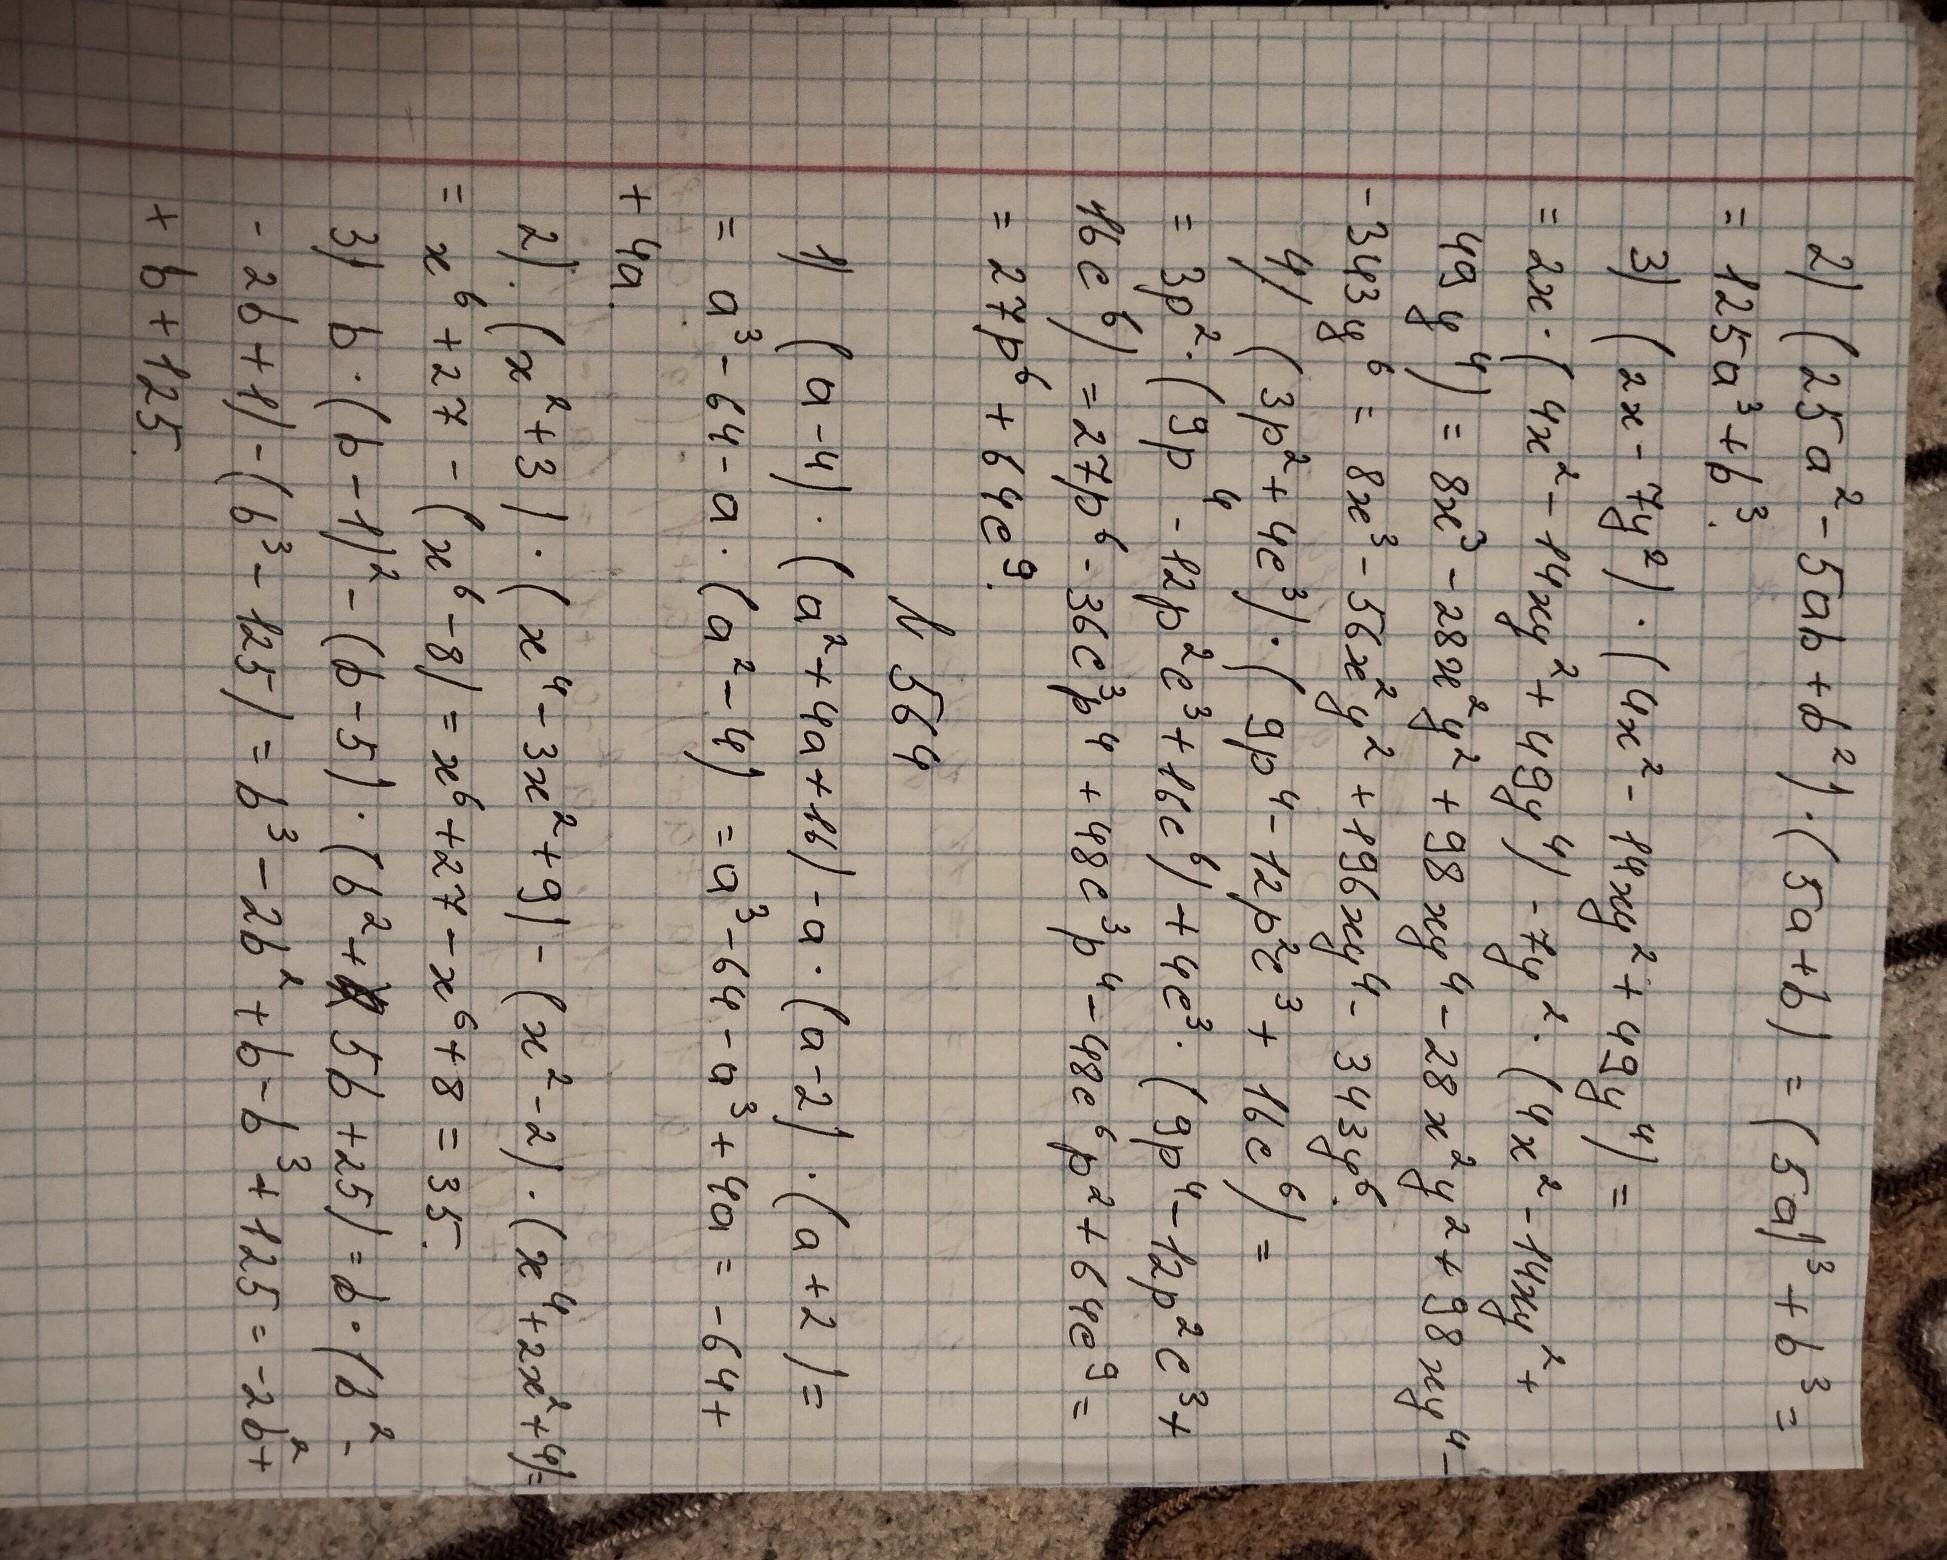 2) (25a² - 5ab + b²) · (5a + b) = (5a)³ + b³ =
= 125a³ + b³.
3) (2x - 7y²) · (4x² - 14xy² + 49y⁴) =
= 2x · (4x² - 14xy² + 49y⁴) - 7y² · (4x² - 14xy² +
49y⁴) = 8x³ - 28x²y² + 98xy⁴ - 28x²y² + 98xy⁴ -
- 343y⁶ = 8x³ - 56x²y² + 196xy⁴ - 343y⁶.
4) (3p² + 4c³) · (9p⁴ - 12p²c³ + 16c⁶) =
= 3p² · (9p⁴ - 12p²c³ + 16c⁶) + 4c³ · (9p⁴ - 12p²c³ +
16c⁶) = 27p⁶ - 36c³p⁴ + 48c³p⁴ - 48c⁶p² + 64c⁹ =
= 27p⁶ + 64c⁹.
N 564
1) (a - 4) · (a² + 4a + 16) - a · (a - 2) · (a + 2) =
= a³ - 64 - a · (a² - 4) = a³ - 64 - a³ + 4a = -64 +
+ 4a.
2) (x² + 3) · (x⁴ - 3x² + 9) - (x² - 2) · (x⁴ + 2x² + 4) =
= x⁶ + 27 - (x⁶ - 8) = x⁶ + 27 - x⁶ + 8 = 35.
3) b · (b - 1)² - (b - 5) · (b² + 5b + 25) = b · (b² -
- 2b + 1) - (b³ - 125) = b³ - 2b² + b - b³ + 125 = -2b² +
+ b + 125.